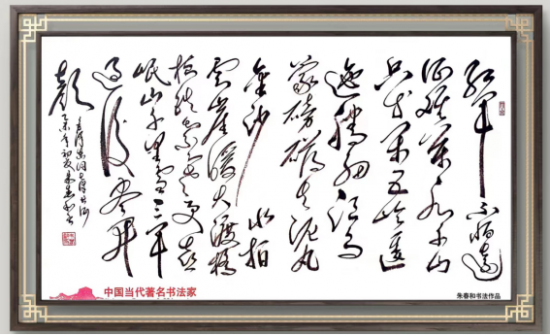 红军不怕远
征难万水千山
只等闲五岭逶
迤腾细浪乌
蒙磅礴走泥丸
金沙水拍
云崖暖大渡桥
横铁索寒更喜
岷山千里雪三军
过后尽开
颜
中国当代著名书法家
朱春和书法作品